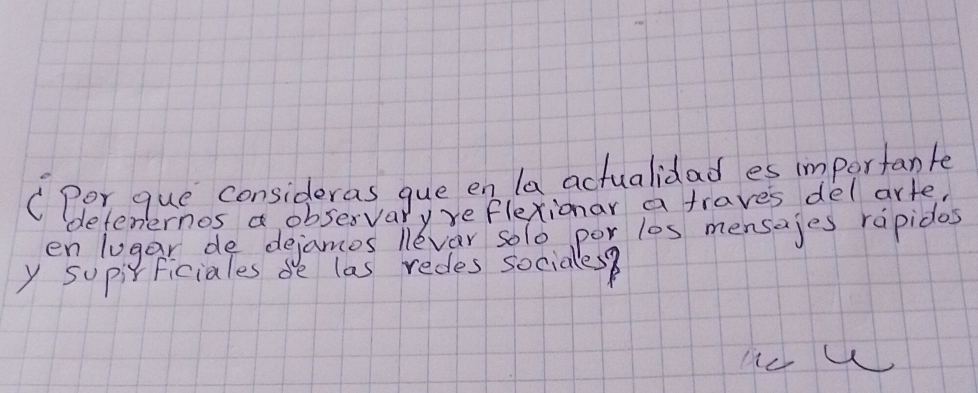 ¿Por que consideras que en la actualidad es importante
detenernos a observar y reflexionar a traves del arte,
en lugar de dejarnos llevar solo por los mensajes rápidos
y supirficiales de las redes sociales?